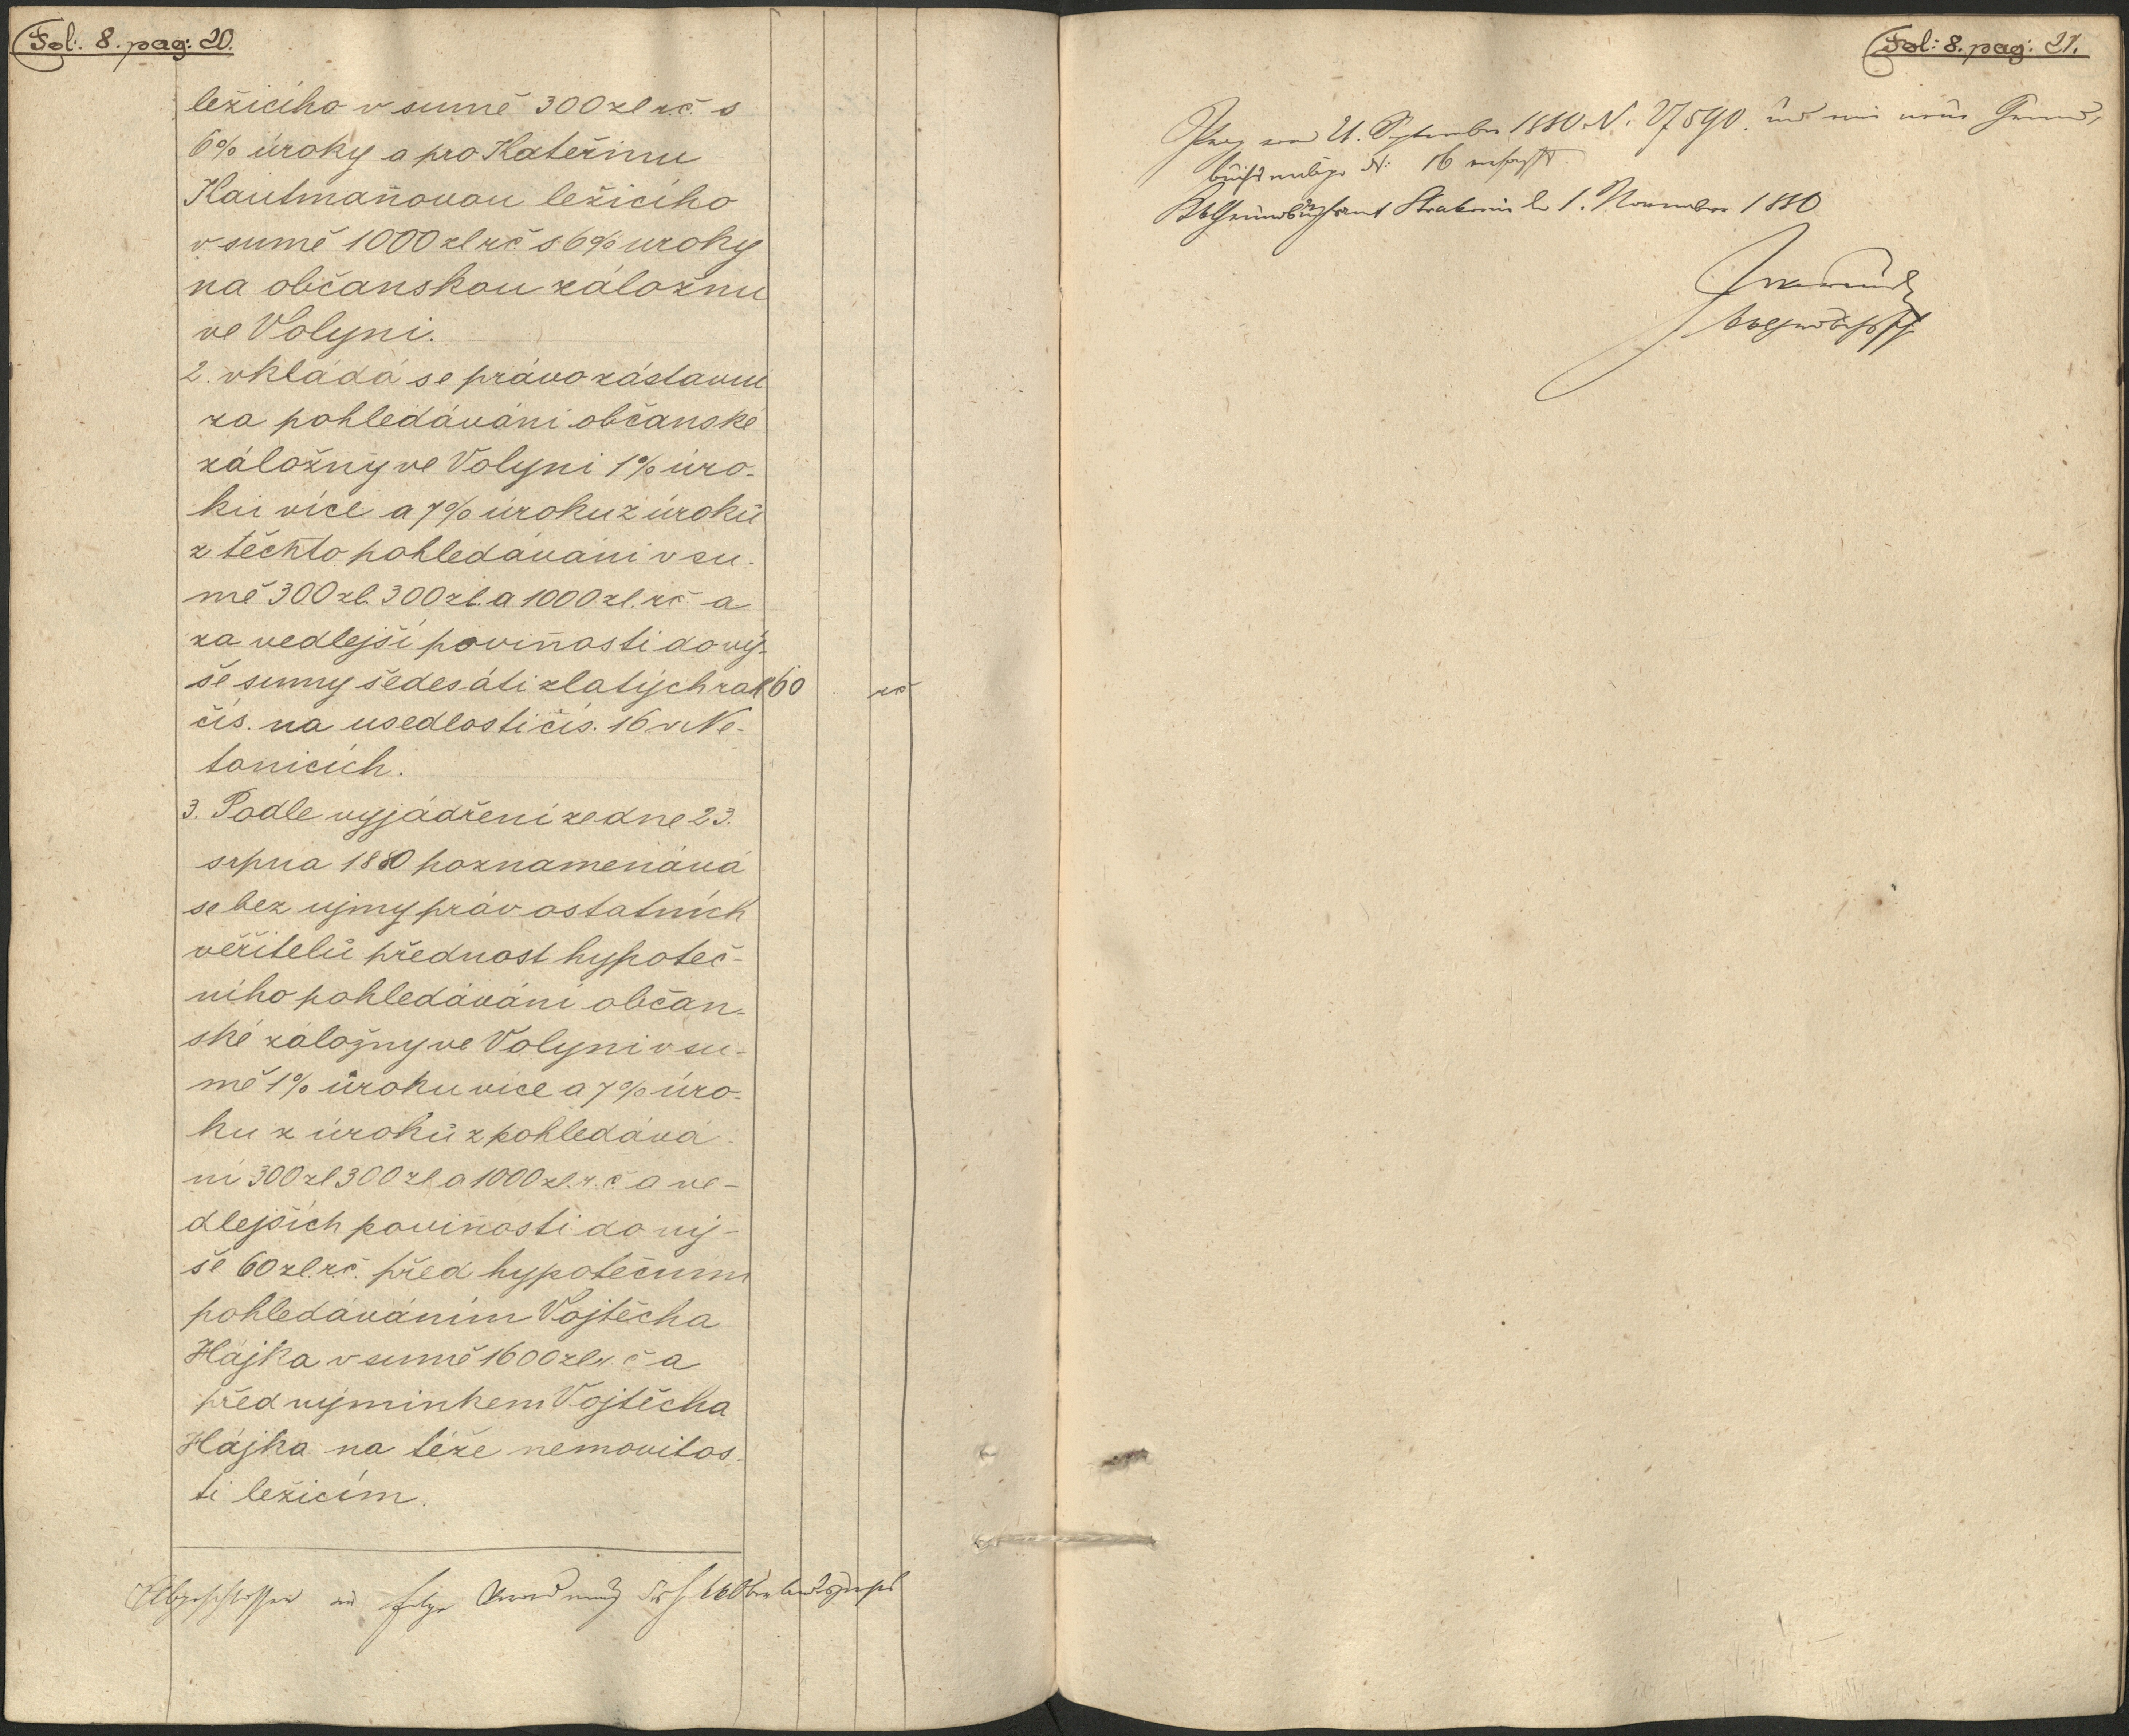 Fol: 8. pag: 20.
ležicího v sumě 300 zl rč. s
6% úroky a pro Kateřinu
Hautmanovou ležicího
v sumě 1000 zl rč s 6% uroky
na občanskou záložnu
ve Volyni.
2. vkládá se právo zástavní
za pohledáváni občanské
záložny ve Volyni 1% úro-
ku více a 7% úroku z úroků
z těchto pohledáváni v su-
mě 300 zl. 300 zl. a 1000 zl. rč. a
za vedlejší povinosti do vý-
še sumy šedesáti zlatých rak 60 rč
čís. na usedlosti čís. 16 v Ne-
tonicích.
3. Podle vyjádření ze dne 23.
srpna 1880 poznamenává
se bez ujmy práv ostatních
věřitelů přednost hypoteč-
ního pohledáváni občan-
ské záložny ve Volyni v su-
mě 1% úroku více a 7% úro-
ku z úroků z pohledává-
ní 300 zl 300 zl a 1000 zl. r. č. a ve-
dlejších povinosti do vý-
še 60 zl. rč. před hypotečním
pohledáváním Vojtěcha
Hájka v sumě 1600 zl r. č a
před výminkem Vojtěcha
Hájka na téže nemovitos-
ti ležicím.
Abgeschlossen in folge Verordnung des h. kk Oberlandesgerichts
Fol: 8. pag: 21.
Prag vom 21. September 1880 N. 27590. und ins neue Grund,
buchs einlage N: 16
kk Grundbuchsamt Strakonic den 1. November 1880